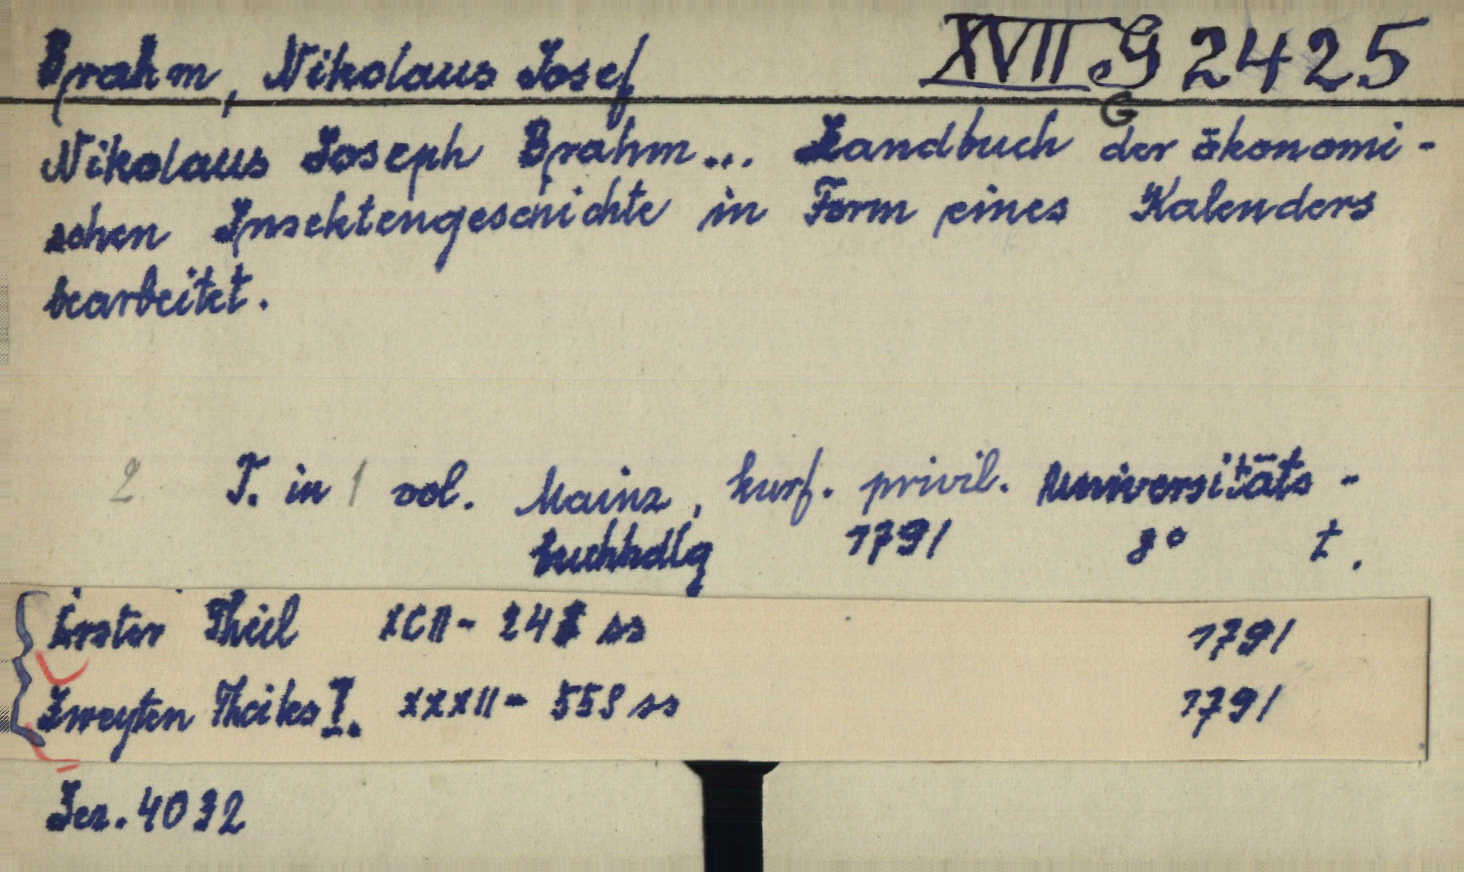 Brahm, Nikolaus Josef XVII G 2425
G
Nikolaus Joseph Brahm... Handbuch der ökonomi-
schen Insektengeschichte in Form eines Kalenders
bearbeitet.
2 T. in 1 vol. Mainz, kurf. privil. Universitäts-
buchhdlg 1791 8° t.
Erster Theil XCII - 248 ss 1791
Zweyten Theiles I. XXXII - 559 ss 1791
Jez. 4032